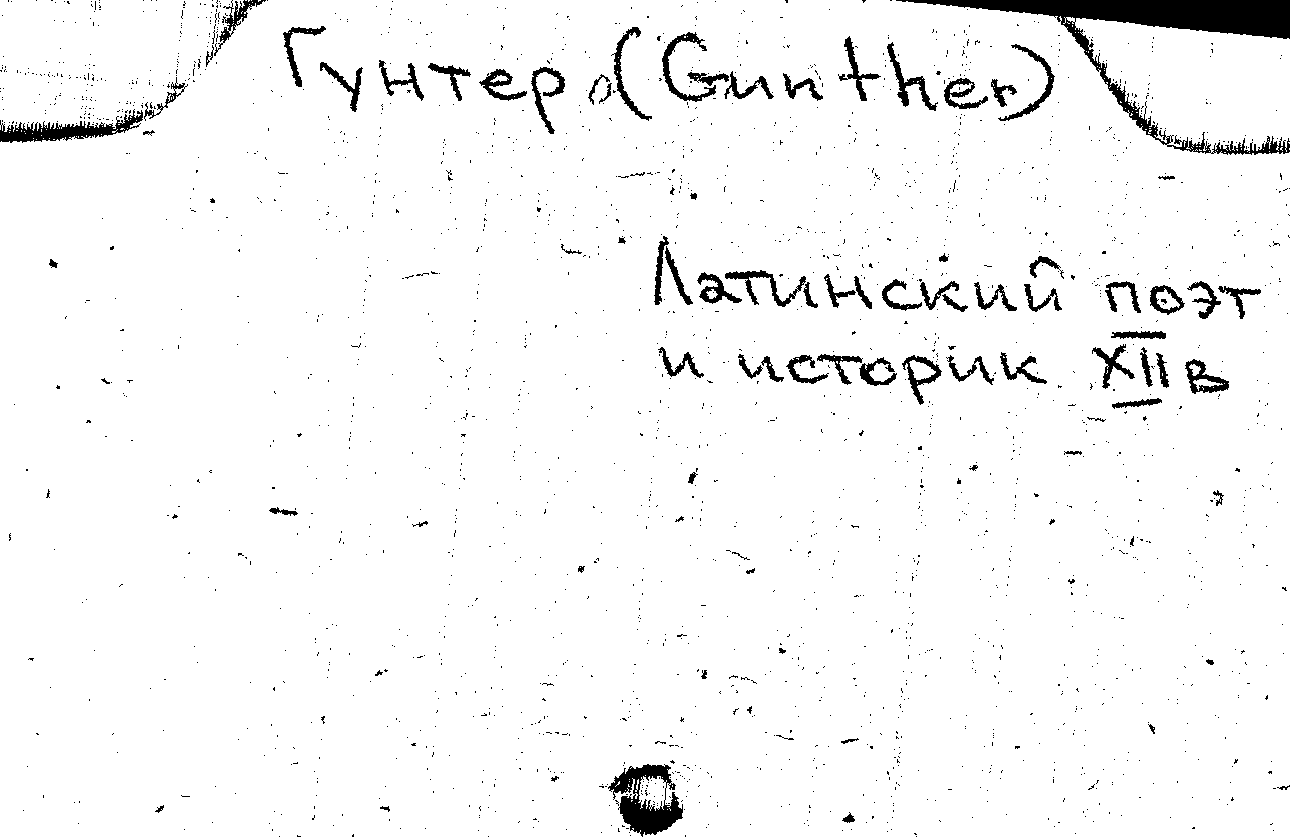 Гунтер (Gunther)
Латинский поэт
и историк XII в